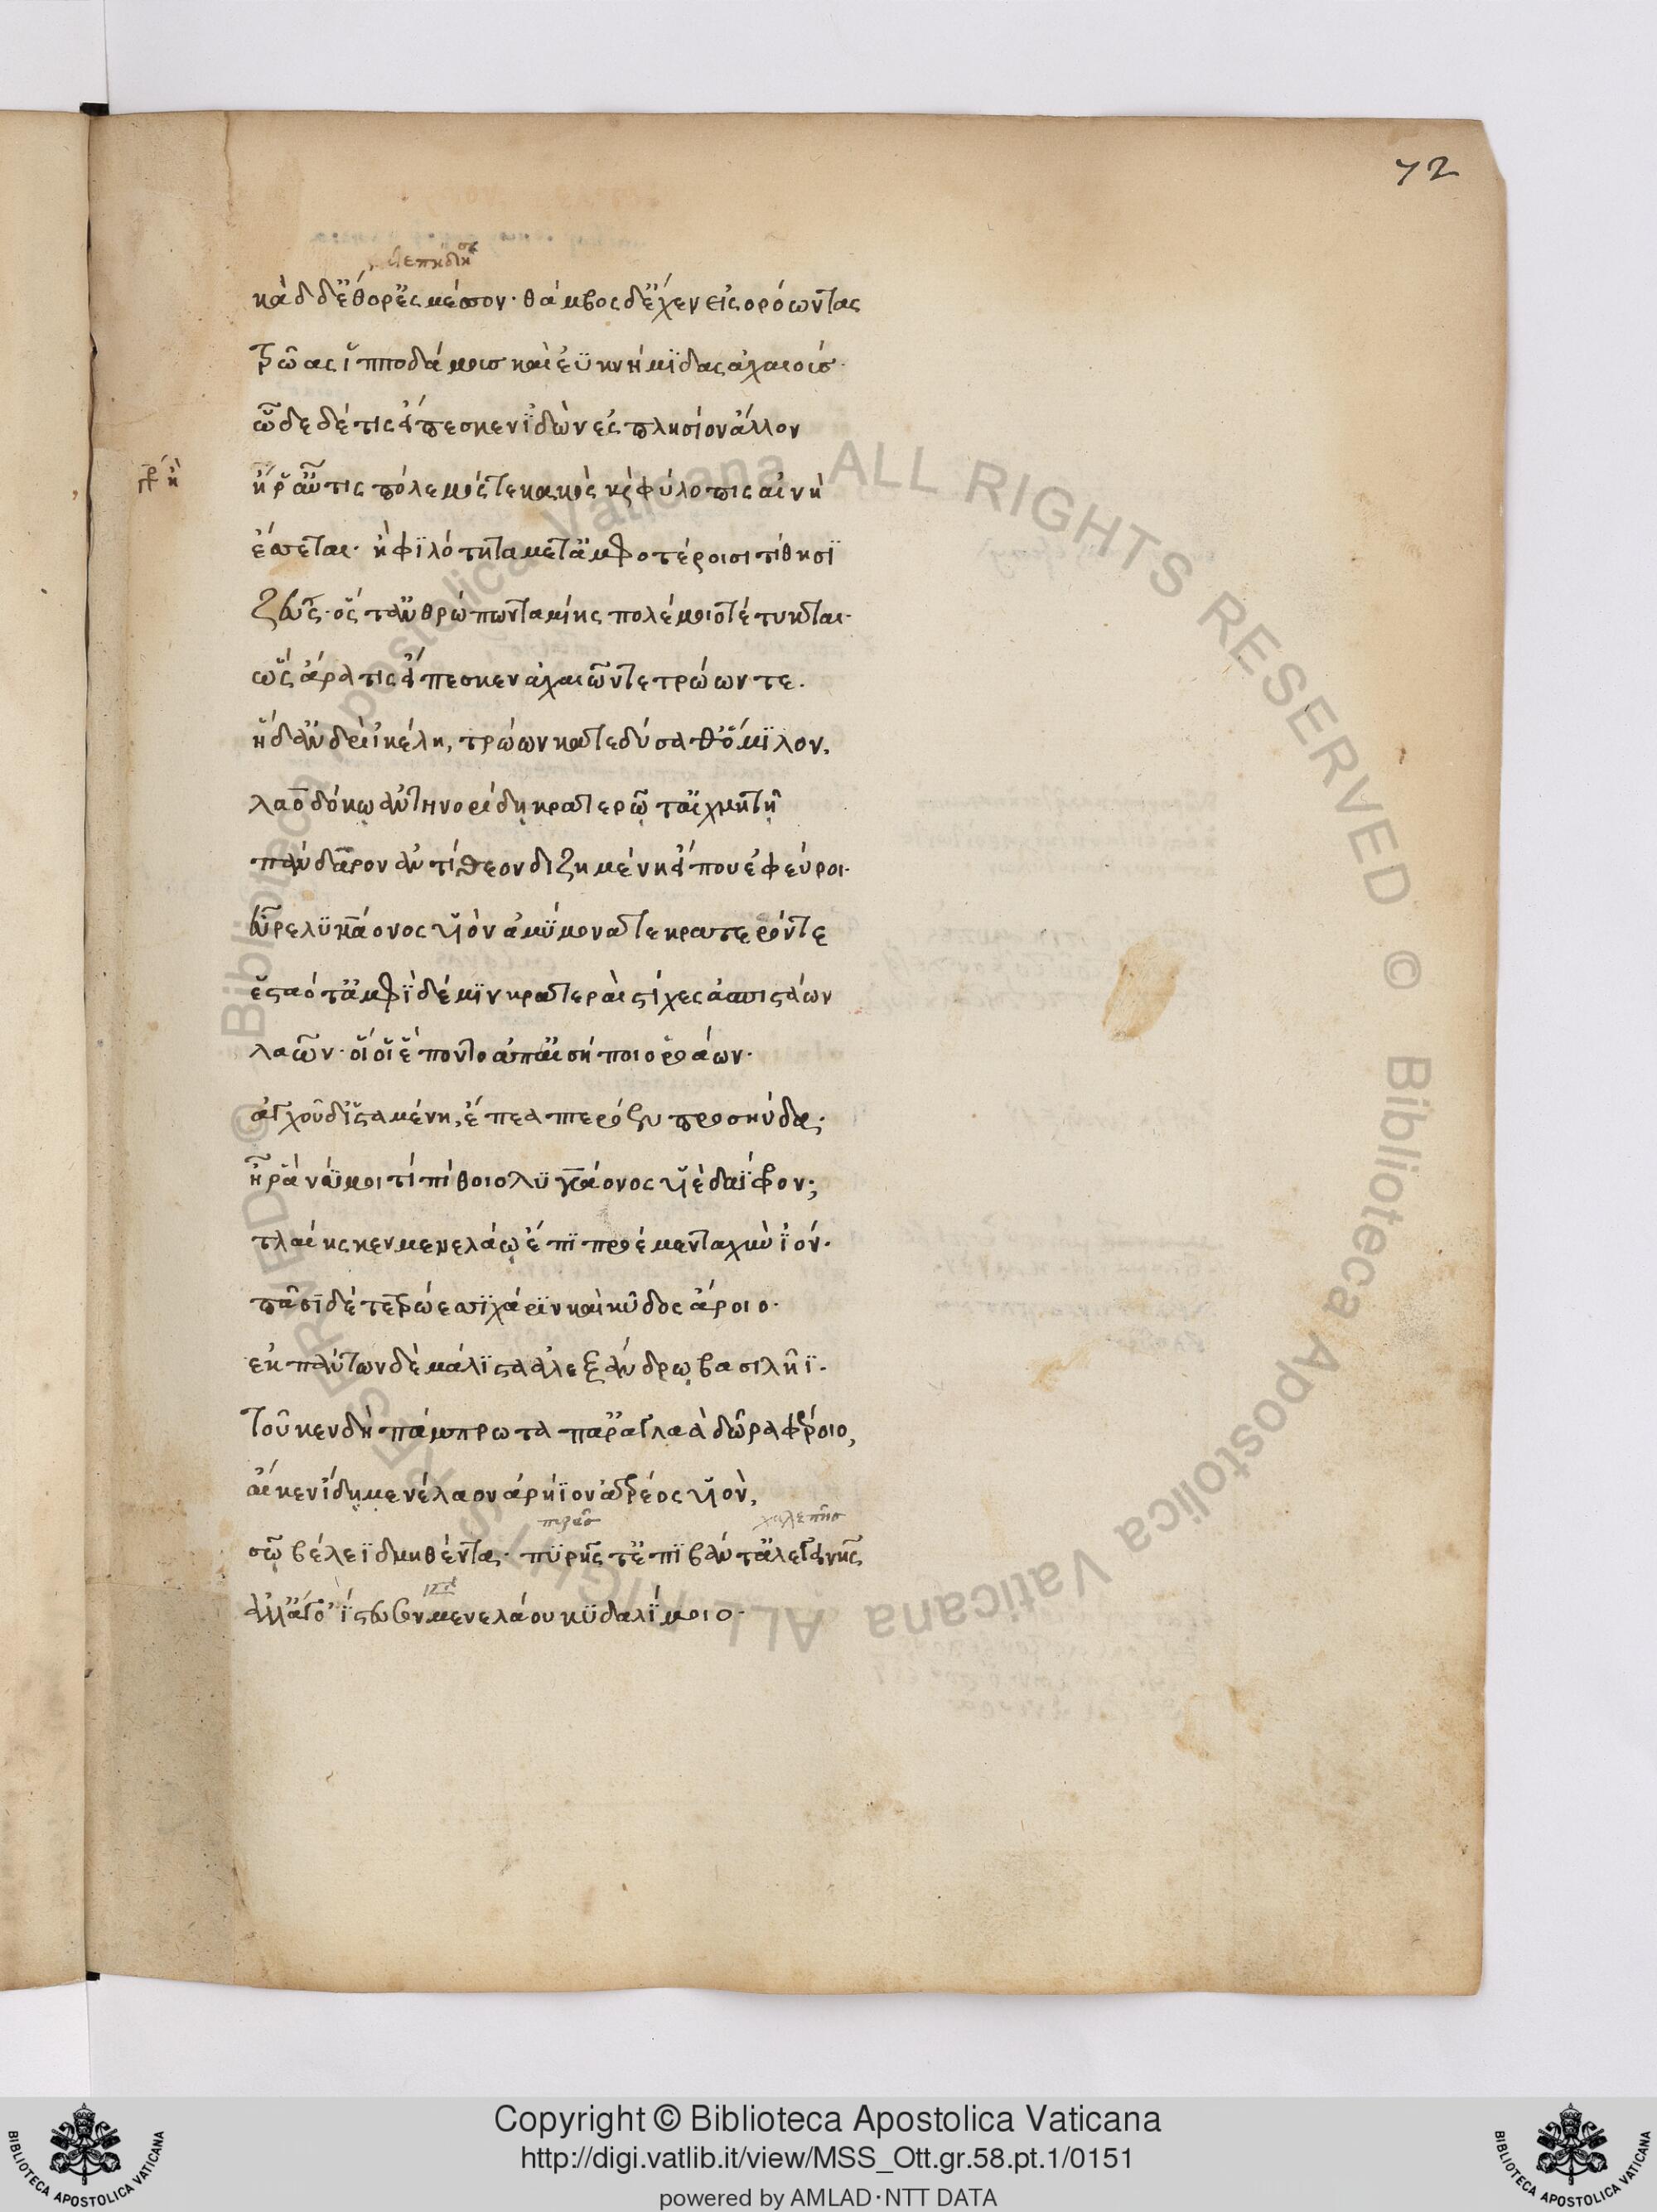 72
κὰδ δ' ἔθορ' ἐς μέσσον· θάμβος δ' ἔχεν εἰσορόωντας
Τρῶας ἱπποδάμους καὶ ἐϋκνήμϊδας ἀχαιούς·
ὧδε δέ τις εἴπεσκεν ϊδὼν ἐς πλησίον ἄλλον
γρ ἢ
ἤ ῥ' αὖτις πόλεμός τε κακὸς κ φύλοπις αἰνὴ
ἔσσεται· ἢ φϊλότητα μετ' ἀμφοτέροισι τίθησϊ
Ζεὺς· ὅς τ' ἀνθρώπων ταμίης πολέμοιο τέτυκται·
ὣς ἄρα τις εἴπεσκεν ἀχαιῶν τε τρώων τε.
ἡ δ' ἀνδρὶ ϊκέλη, τρώων κατεδύσαθ' ὅμϊλον,
λαοδόκῳ ἀντηνορίδῃ κρατερῷ τ' αἰχμητῇ
πάνδαρον ἀντίθεον διζημένη εἴ που ἐφεύροι·
εὗρε λϋκάονος υἱὸν ἀμΰμονά τε κρατερόν τε
ἑσταότ' ἀμφϊ δέ μϊν κρατεραὶ στίχες ἀσπιστάων
λαῶν· οἵ οἱ ἕποντο ἀπ' αἰσήποιο ῥοάων·
ἀγχοῦ δ' ϊσταμένη, ἔπεα πτερόεντα προσηύδα;
ἦ ῥά νύ μοι τί πίθοιο λϋκάονος υἱὲ δαΐφρον;
τλαίης κεν μενελάῳ ἔπϊ προέμεν ταχὺν ϊόν·
πᾶσϊ δέ κε τρώεσσϊ χάρϊν καὶ κῦδος ἄροιο·
ἐκ πάντων δὲ μάλϊστα ἀλεξάνδρῳ βασιλῆϊ·
τοῦ κεν δὴ πάμπρωτα παρ' ἀγλαὰ δῶρα φέροιο,
αἴ κεν ίδῃ μενέλαον ἀρήϊον ἀτρέος υἱὸν,
χαλεπῆσ
σῷ βέλεϊ δμηθέντα· πϋρῆς τ' ἐπϊβάντ' ἀλεγεινῆς
ἀλλ' ἄγ' ὀΐστευσον μενελάου κϋδαλΐμοιο·
© Biblioteca Apostolica Vaticana ALL RIGHTS RESERVED © Biblioteca Apostolica Vaticana ALL RIGHTS RESERVED
Copyright © Biblioteca Apostolica Vaticana
http://digi.vatlib.it/view/MSS_Ott.gr.58.pt.1/0151
powered by AMLAD·NTT DATA
BIBLIOTECA APOSTOLICA VATICANA
BIBLIOTECA APOSTOLICA VATICANA